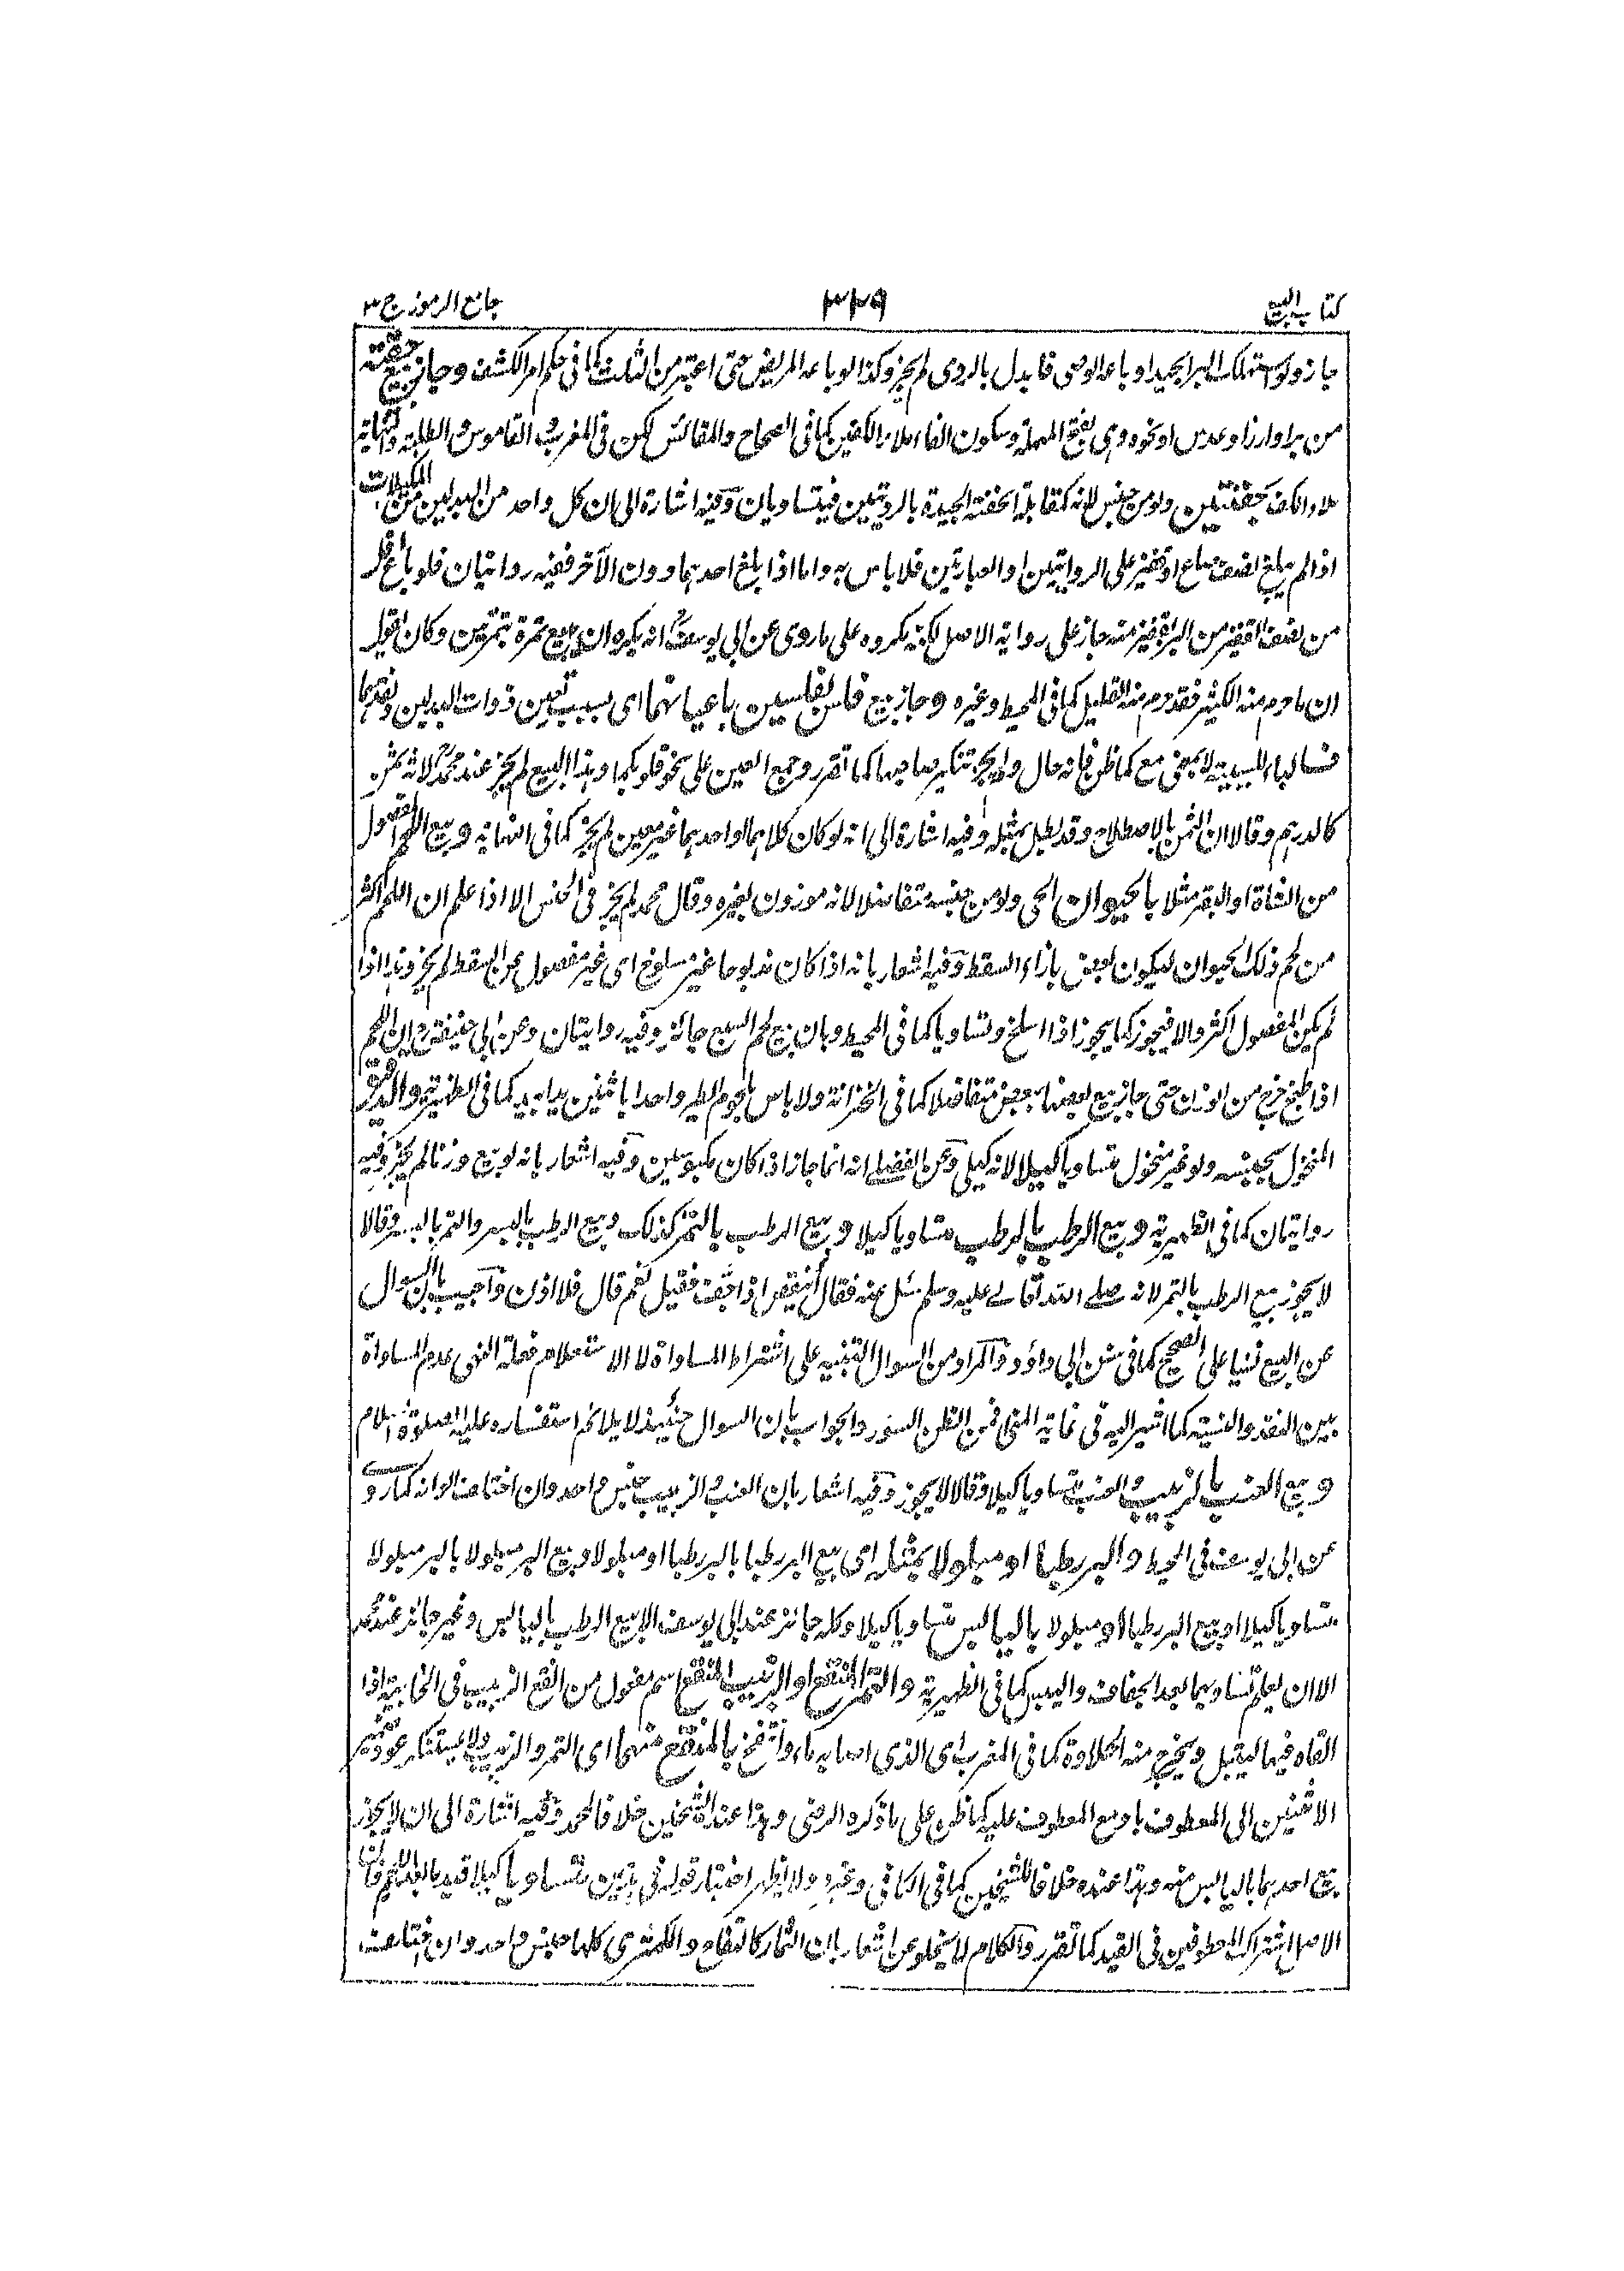 كتاب البيع ٣٢٩ جامع الرموز ج ٣
جاز ولو استهلك البر الجيد او باعه الوصى فابدل بالردى لم يجز وكذا لو باعه المريض حتى اعتبر من الثلث كما فى حكم امر الكشف وجاز بيع حفنة
من بر او ارز او عدس او نحوه وهى بفتح المهملة وسكون الفاء ملاء الكفين كما فى الصحاح والمقائس لكن فى المغرب والقاموس والطلبة والنهاية
ملاء الكف بحفنتين ولو من جنس لانه كمقابلة الحفنة الجيدة بالرديتين فيتساويان وفيه اشارة الى ان كل واحد من البدلين من المكيلات
اذا لم يبلغ نصف صاع او قفيز على الروايتين او العبارتين فلا باس به واما اذا بلغ احدهما دون الآخر ففيه روايتان فلو باع اقل
من نصف القفيز من البر بقفيز منه جاز على رواية الاصل لكنه يكره على ما روى عن ابى يوسف انه يكره ان يبيع تمرة بتمرتين وكان يقول
ان ما حرم منه الكثير فقد حرم منه القليل كما فى المحيط وغيره وجاز بيع فلس بفلسين باعيانهما اى بسبب تعين ذوات البدلين ونقدهما
فالباء للسببية لا بمعنى مع كما ظن فانه حال ولم يجز تنكير صاحبها كما تقرر وجمع العين على نحو قلوبكما وهذا البيع لم يجز عند محمد لانه ثمن
كالدرهم وقالا ان الثمن بالاصطلاح وقد بطل بمثله وفيه اشارة الى انه لو كان كلاهما او احدهما غير معين لم يجز كما فى النهاية وبيع اللحم المفصول
من الشاة او البقر مثلا بالحيوان الحى ولو من جنسه متفاضلا لانه موزون بغيره وقال محمد لم يجز فى الجنس الا اذا علم ان اللحم اكثر
من لحم ذلك الحيوان ليكون لبعض بازاء السقط وفيه اشعار بانه اذا كان مذبوحا غير مسلوخ اى غير مفصول عن السقط لم يجز وهذا اذا
لم يكن المفصول اكثر والا فيجوز كما يجوز اذا اسلخ وتساويا كما فى المحيط وبان بيع لحم السبع جائز وفيه روايتان وعن ابى حنيفة ان اللحم
اذا طبخ خرج من الوزن حتى جاز بيع بعضها ببعض متفاضلا كما فى الخزانة ولا باس بلحوم الطير واحدا باثنين يدا بيد كما فى الظهيرية والدقيق
المنخول بجنسه ولو غير منخول متساويا كيلا لانه كيلى وعن الفضلى انه انما جاز اذا كان مكبوسين وفيه اشعار بانه لو بيع وزنا لم يجز وفيه
روايتان كما فى الظهيرية وبيع الرطب بالرطب متساويا كيلا وبيع الرطب بالتمر كذلك وبيع الرطب بالبسر والتمر بالبسر وقالا
لا يجوز بيع الرطب بالتمر لانه صلى الله تعالى عليه وسلم سئل عنه فقال أينقص اذا جفت فقيل نعم قال فلا اذن واجيب بان السوال
عن البيع نسيا على الصحيح كما فى سنن ابى داؤد والمراد من السوال التنبيه على اشتراط المساواة لا الاستعلام فعلة النهى عدم المساواة
بين النقد والنسية كما اشير اليه فى نهاية المنى فمن الظن السوء رد الجواب بان السوال حينئذ لا يلائم استفساره عليه الصلوة والسلام
وبيع العنب بالزبيب والعنب متساويا كيلا وقالا لا يجوز وفيه اشعار بان العنب والزبيب جنس واحد وان اختلف الوانه كما روى
عن ابى يوسف فى المحيط والبر رطبا او مبلولا بمثله اى بيع البر رطبا بالبر رطبا او مبلولا وبيع البر مبلولا بالبر مبلولا
متساويا كيلا او بيع البر رطبا او مبلولا باليابس متساويا كيلا وكله جائز عند ابى يوسف الا بيع الرطب باليابس وغير جائز عند محمد
الا ان يعلم تساويهما بعد الجفاف واليبس كما فى الظهيرية والتمر المنقع او الزبيب المنقع اسم مفعول من انقع الزبيب فى الخابية اذا
القاه فيها ليبتل ويخرج منه الحلاوة كما فى المغرب اى الذى اصابه ماء وانتفخ بالمنقع منهما اى التمر والزبيب ولا يستنكر عود ضمير
الاثنين الى المعطوف باو مع المعطوف عليه كما ظن على ما ذكره الرضى وهذا عند الشيخين خلافا لمحمد وفيه اشارة الى ان لا يجوز
بيع احدهما باليابس منه وهذا عنده خلافا للشيخين كما فى الكافى وغيره ولا يظهر اختيار قوله فى متساويا كيلا قيد
الاصل اشتراك المعطوفين فى القيد كما تقرر والكلام لا يخلو عن اشعار بان الثمار كالتفاح والكمثرى كلها جنس واحد وان اختلفت